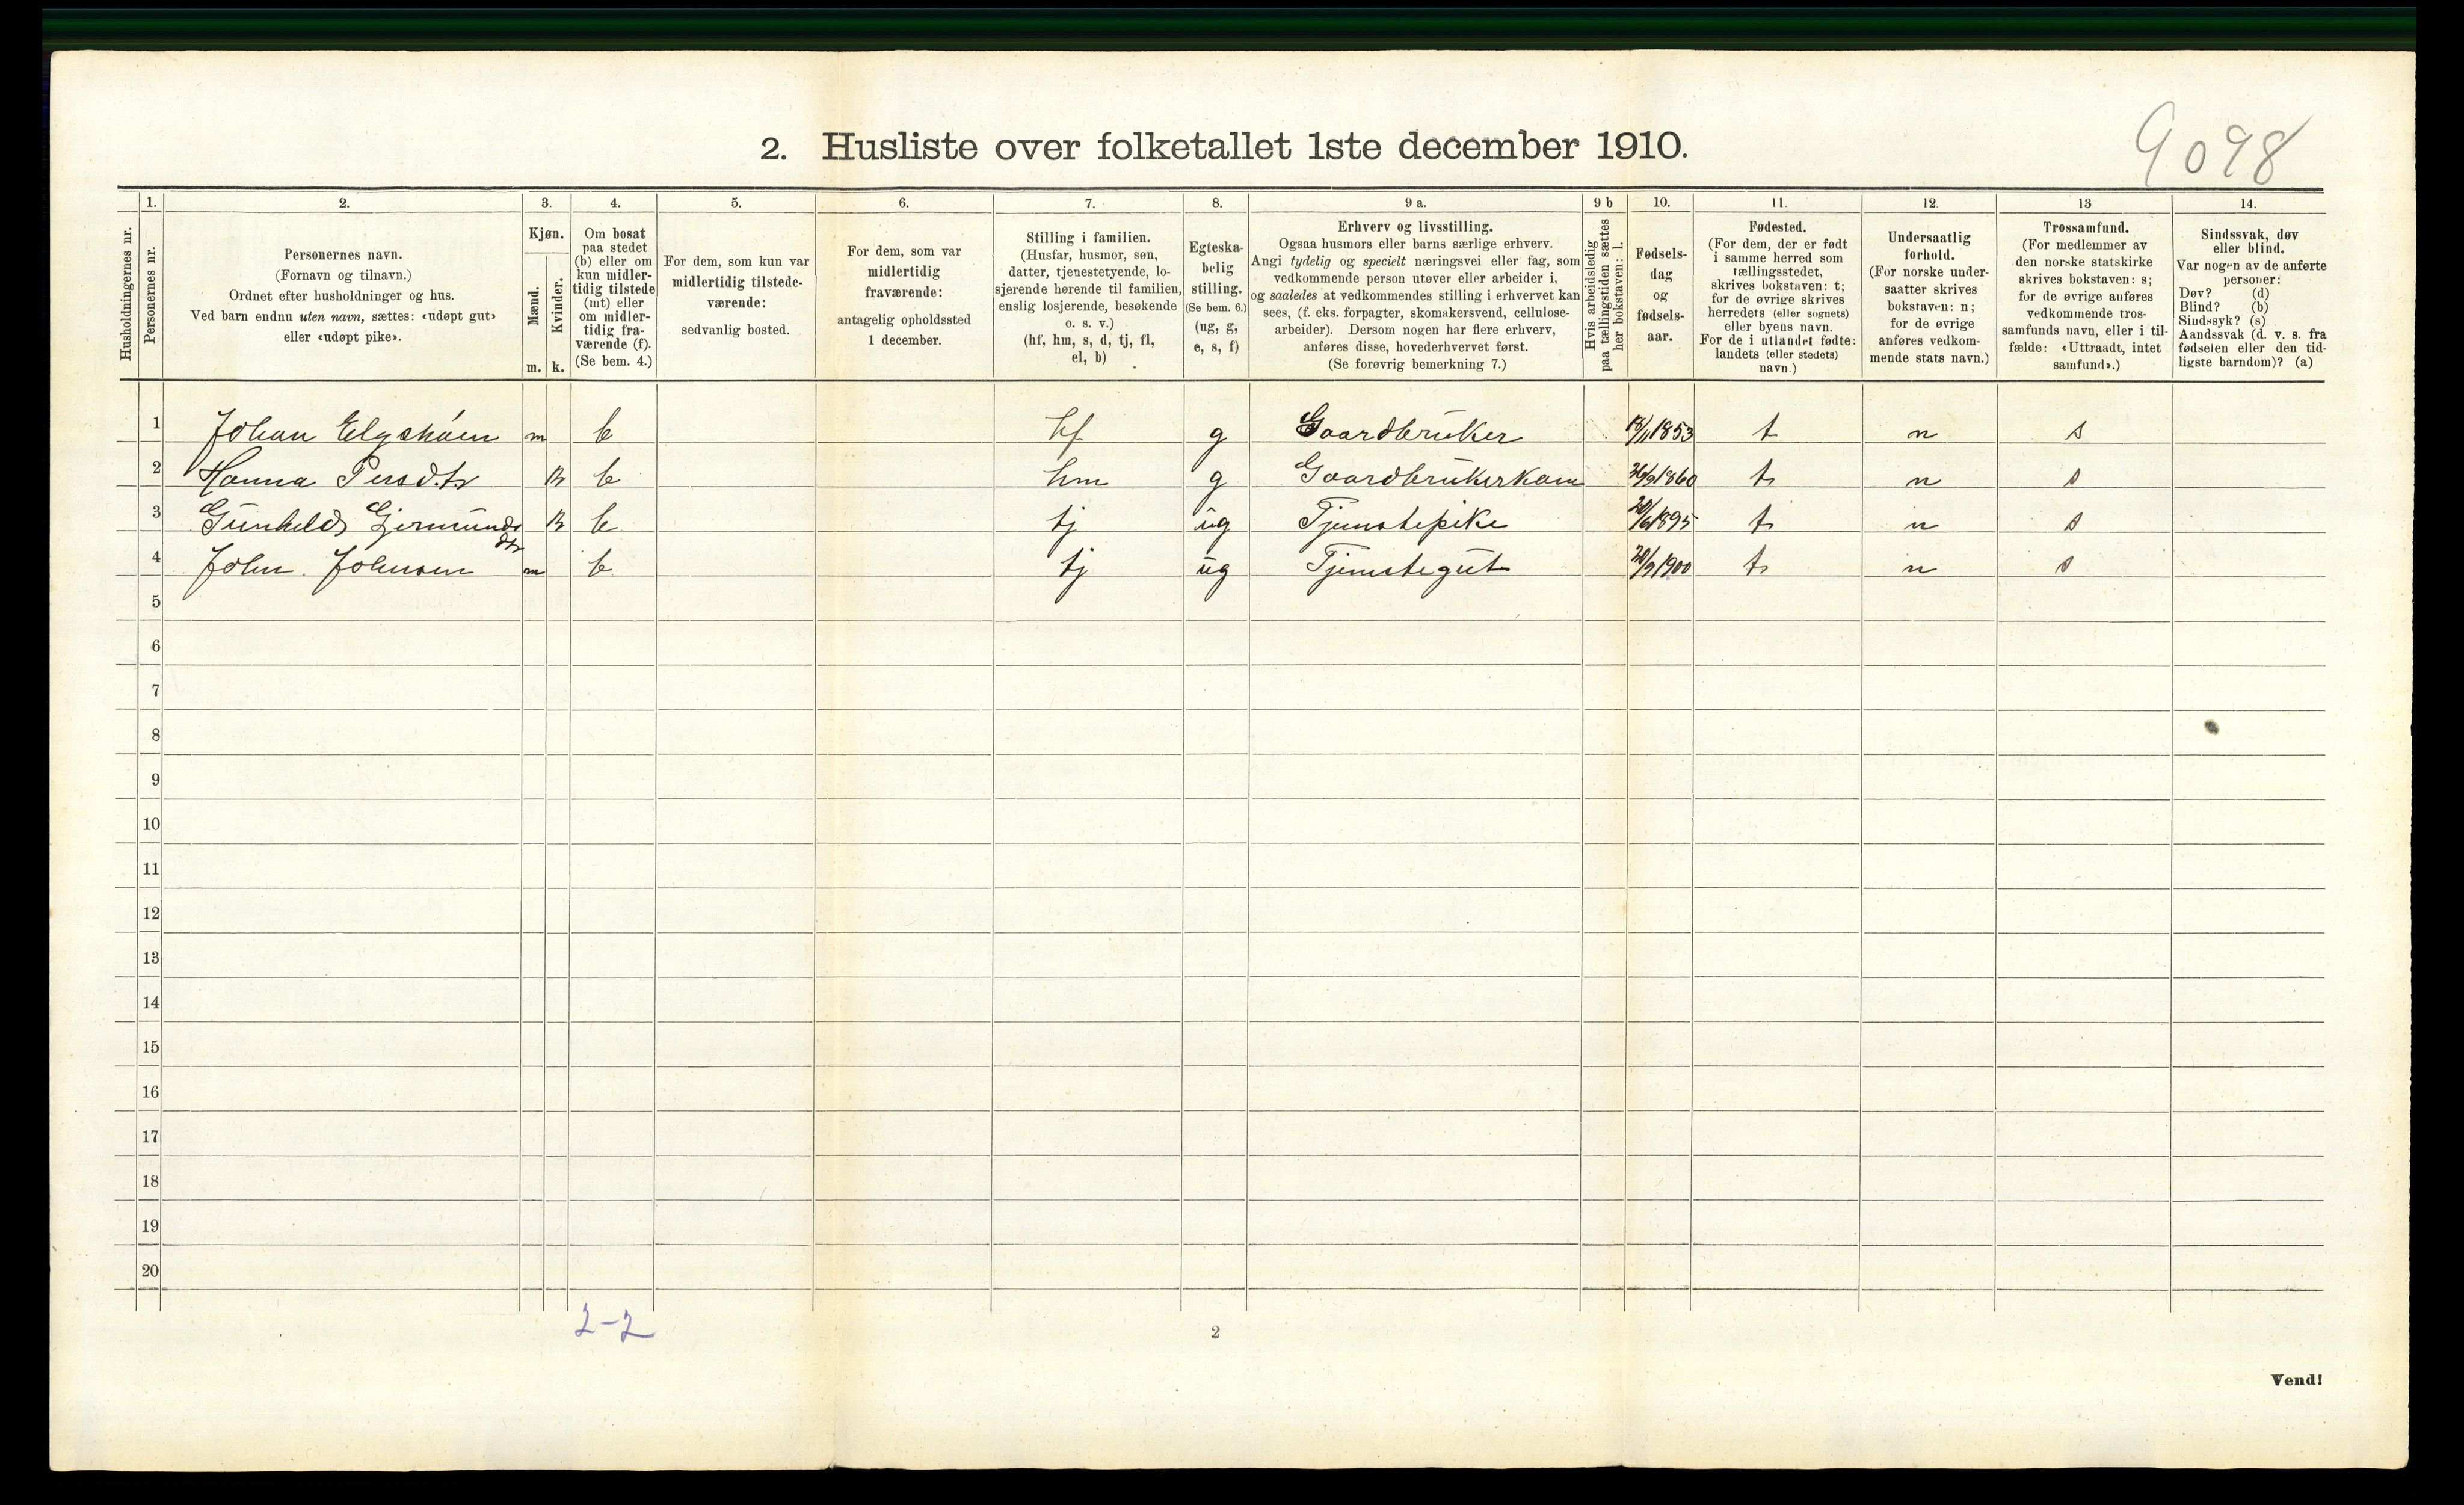 9098
2. Husliste over folketallet 1ste december 1910.
Husholdningernes nr.
1.
Personernes nr.
2.
Personernes navn.
(Fornavn og tilnavn.)
Ordnet efter husholdninger og hus.
Ved barn endnu uten navn, sættes: «udøpt gut»
eller «udøpt pike».
3.
Kjøn.
Mænd.
Kvinder.
m. k.
4.
Om bosat
paa stedet
(b) eller om
kun midler-
tidig tilstede
(mt) eller
om midler-
tidig fra-
værende (f).
(Se bem. 4.)
5.
For dem, som kun var
midlertidig tilstede-
værende:
sedvanlig bosted.
6.
For dem, som var
midlertidig
fraværende:
antagelig opholdssted
1 december.
7.
Stilling i familien.
(Husfar, husmor, søn,
datter, tjenestetyende, lo-
sjerende hørende til familien,
enslig losjerende, besøkende
o. s. v.)
(hf, hm, s, d, tj, fl,
el, b)
8.
Egteska-
belig
stilling.
(Se bem. 6.)
(ug, g,
e, s, f)
9 a.
Erhverv og livsstilling.
Ogsaa husmors eller barns særlige erhverv.
Angi tydelig og specielt næringsvei eller fag, som
vedkommende person utøver eller arbeider i,
og saaledes at vedkommendes stilling i erhvervet kan
sees, (f. eks. forpagter, skomakersvend, cellulose-
arbeider). Dersom nogen har flere erhverv,
anføres disse, hovederhvervet først.
(Se forøvrig bemerkning 7.)
9 b
Hvis arbeidsledig
paa tællingstiden sættes
her bokstaven: l.
10.
Fødsels-
dag
og
fødsels-
aar.
11.
Fødested.
(For dem, der er født
i samme herred som
tællingsstedet,
skrives bokstaven: t;
for de øvrige skrives
herredets (eller sognets)
eller byens navn.
For de i utlandet fødte:
landets (eller stedets)
navn.)
12.
Undersaatlig
forhold.
(For norske under-
saatter skrives
bokstaven: n;
for de øvrige
anføres vedkom-
mende stats navn.)
13
Trossamfund.
(For medlemmer av
den norske statskirke
skrives bokstaven: s;
for de øvrige anføres
vedkommende tros-
samfunds navn, eller i til-
fælde: «Uttraadt, intet
samfund».)
14.
Sindssvak, døv
eller blind.
Var nogen av de anførte
personer:
Døv? (d)
Blind? (b)
Sindssyk? (s)
Aandssvak (d. v. s. fra
fødselen eller den tid-
ligste barndom)? (a)
1 Johan Elgshøen m b hf g Gaardbruker 1853 t n s
2 Hanna Persdtr k b hm g Gaardbrukerkone 1860 t n s
3 Gunhild Gjermunds k b tj ug Tjenstepike 20/6 1895 t n s
dtr
4 John Johnsen m b tj ug Tjenstegut 1900 t n s
5
6
7
8
9
10
11
12
13
14
15
16
17
18
19
20
2-2
2
Vend!